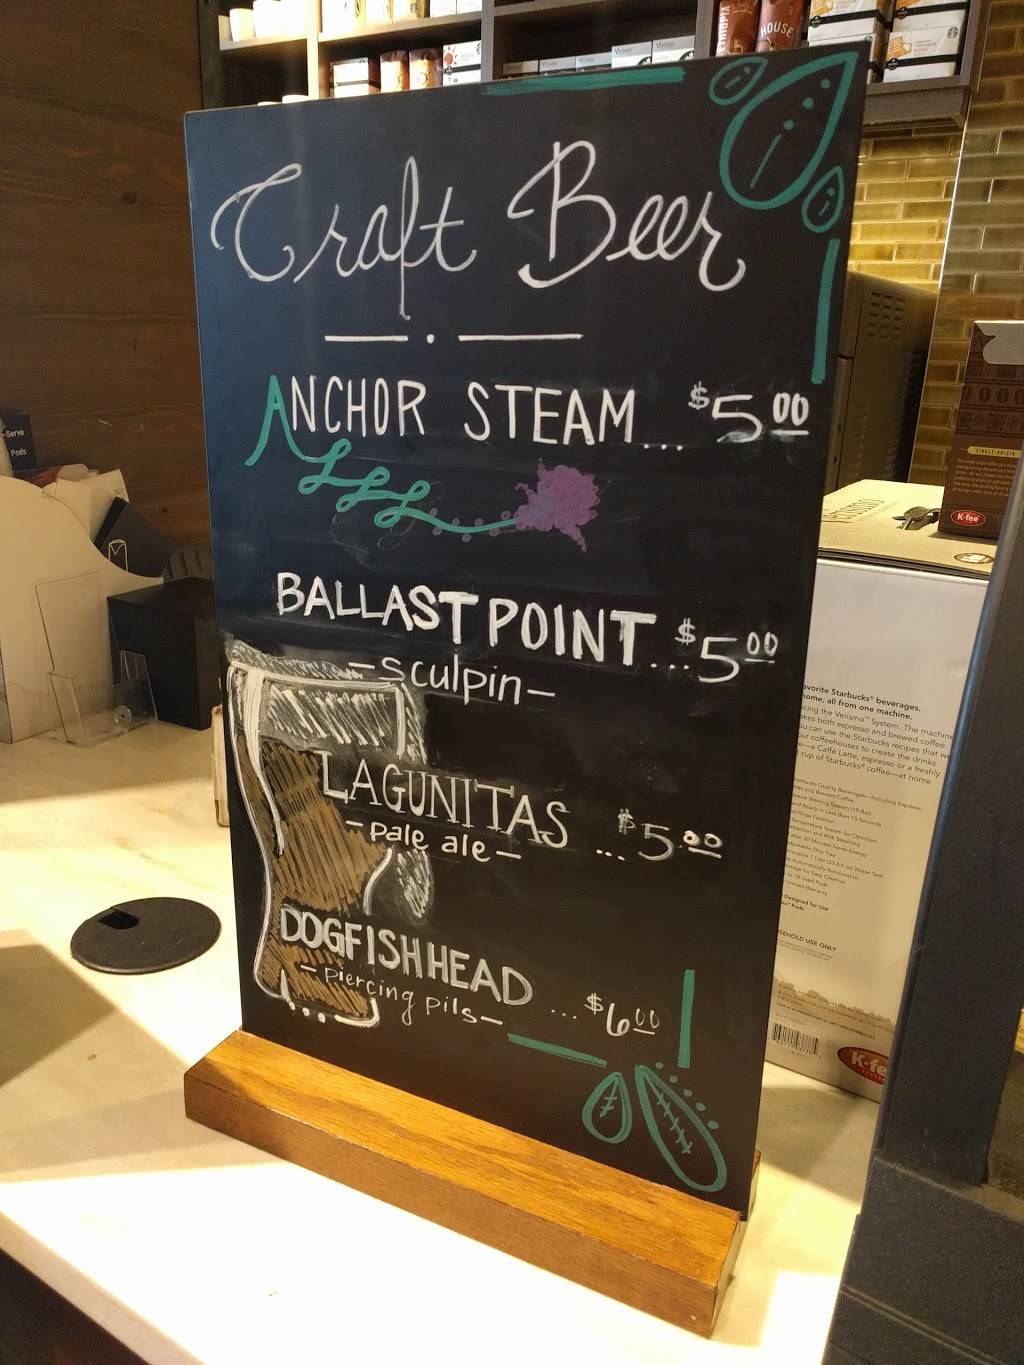 Craft Beer
ANCHOR STEAM... $5.00
BALLAST POINT... $5.00
-sculpin-
LAGUNITAS ... $5.00
-pale ale-
DOGFISH HEAD ... $6.00
-piercing pils-
HOUSE
-Serve
Pods
SINGLE-ORIGIN
K-fee
avorite Starbucks® beverages,
home, all from one machine.
cing the Verismo™ System. The machine
akes both espresso and brewed coffee
ou can use the Starbucks recipes that we
ur coffeehouses to create the drinks
e—a Caffè Latte, espresso or a freshly
cup of Starbucks® coffee—at home
Designed for Use
Pods
SEHOLD USE ONLY
K-fee